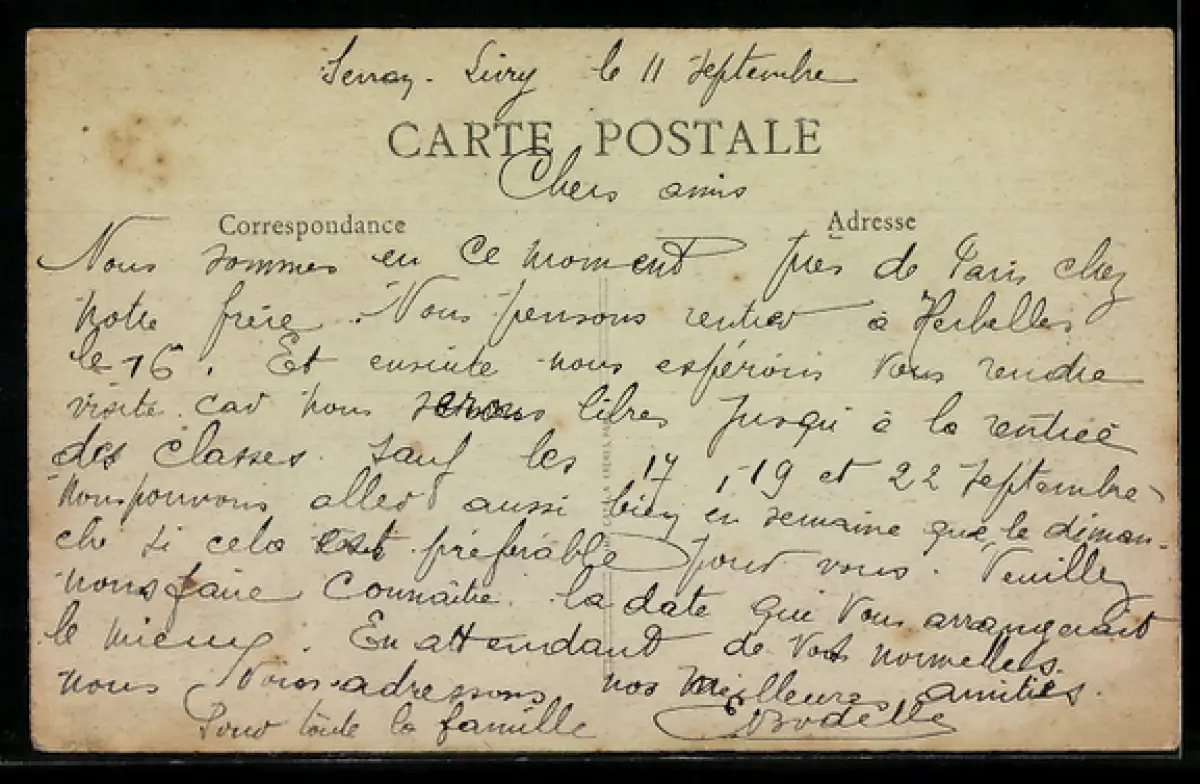 Livry le 11 Septembre
CARTE POSTALE
Chers amis
Correspondance
Adresse
Nous sommes en ce moment près de Paris chez
notre frère. Nous pensons rentrer à Herbelles
le 16. Et ensuite nous espérons vous rendre
visite car nous serons libres jusqu'à la rentrée
des classes. Sauf les 17, 19 et 22 septembre
nous pouvons aller aussi bien en semaine que le diman-
che si cela est préférable pour vous. Veuillez
nous faire connaître la date qui vous arrangerait
le mieux. En attendant de vos nouvelles
nous vous adressons nos meilleures amitiés.
Pour toute la famille